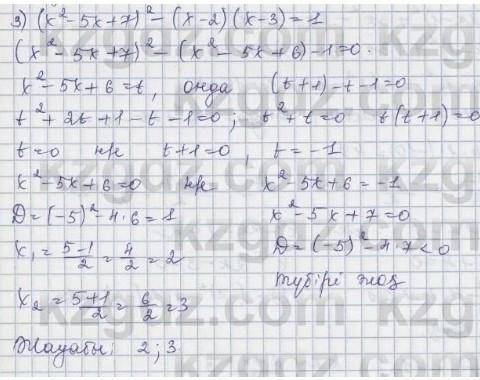 3) (x²-5x+7)²-(x-2)(x-3)=1
(x²-5x+7)²-(x²-5x+6)-1=0.
x²-5x+6=t, онда (t+1)-t-1=0
t²+2t+1-t-1=0; t²+t=0 t(t+1)=0
t=0 не t+1=0, t=-1
x²-5x+6=0 не x²-5x+6=-1
D=(-5)²-4·6=1 x²-5x+7=0
x₁=(5-1)/2=4/2=2 D=(-5)²-4·7<0
түбірі жоқ
x₂=(5+1)/2=6/2=3
Жауабы: 2;3
kzgaz.com